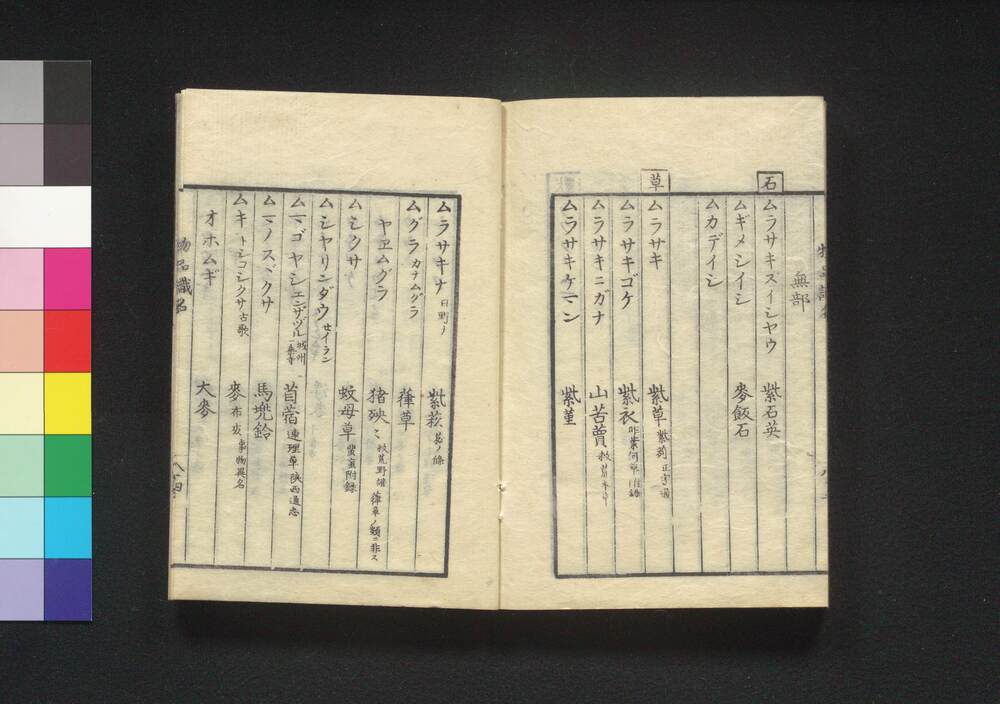 無部
石
ムラサキスイシヤウ 紫石英
ムギメシイシ 麥飯石
ムカデイシ
草
ムラサキ 紫草 紫芺 正字通
ムラサキゴケ 紫衣
ムラサキニガナ 山苦蕒
ムラサキケマン 紫菫
ムラサキナ 日野ノ 紫菘 菘ノ條
ムグラ カナムグラ 葎草
ヤヱムグラ 猪殃〻 救荒野譜 葎草ノ類ニ非ス
ムシクサ 蚊母草 附錄
ムシヤリンダウ セイラン
ムマゴヤシ エンザヅル 城州一乘寺 苜蓿 連理草 陝西通志
ムマノスヾクサ 馬兠鈴
ムギ トシコシクサ 古歌 麥 事物異名
オホムギ 大麥
物品識名